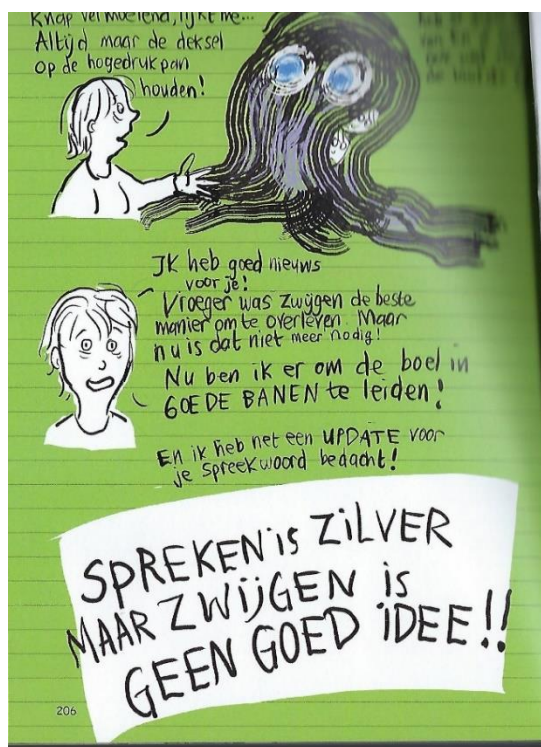 Knap vermoeiend, lijkt me...
Altijd maar de deksel
op de hogedrukpan
houden!
IK heb goed nieuws
voor je!
Vroeger was zwijgen de beste
manier om te overleven. Maar
nu is dat niet meer nodig!
Nu ben ik er om de boel in
GOEDE BANEN te leiden!
En ik heb net een UPDATE voor
je spreekwoord bedacht!
SPREKEN is ZILVER
MAAR ZWIJGEN is
GEEN GOED IDEE!!
206